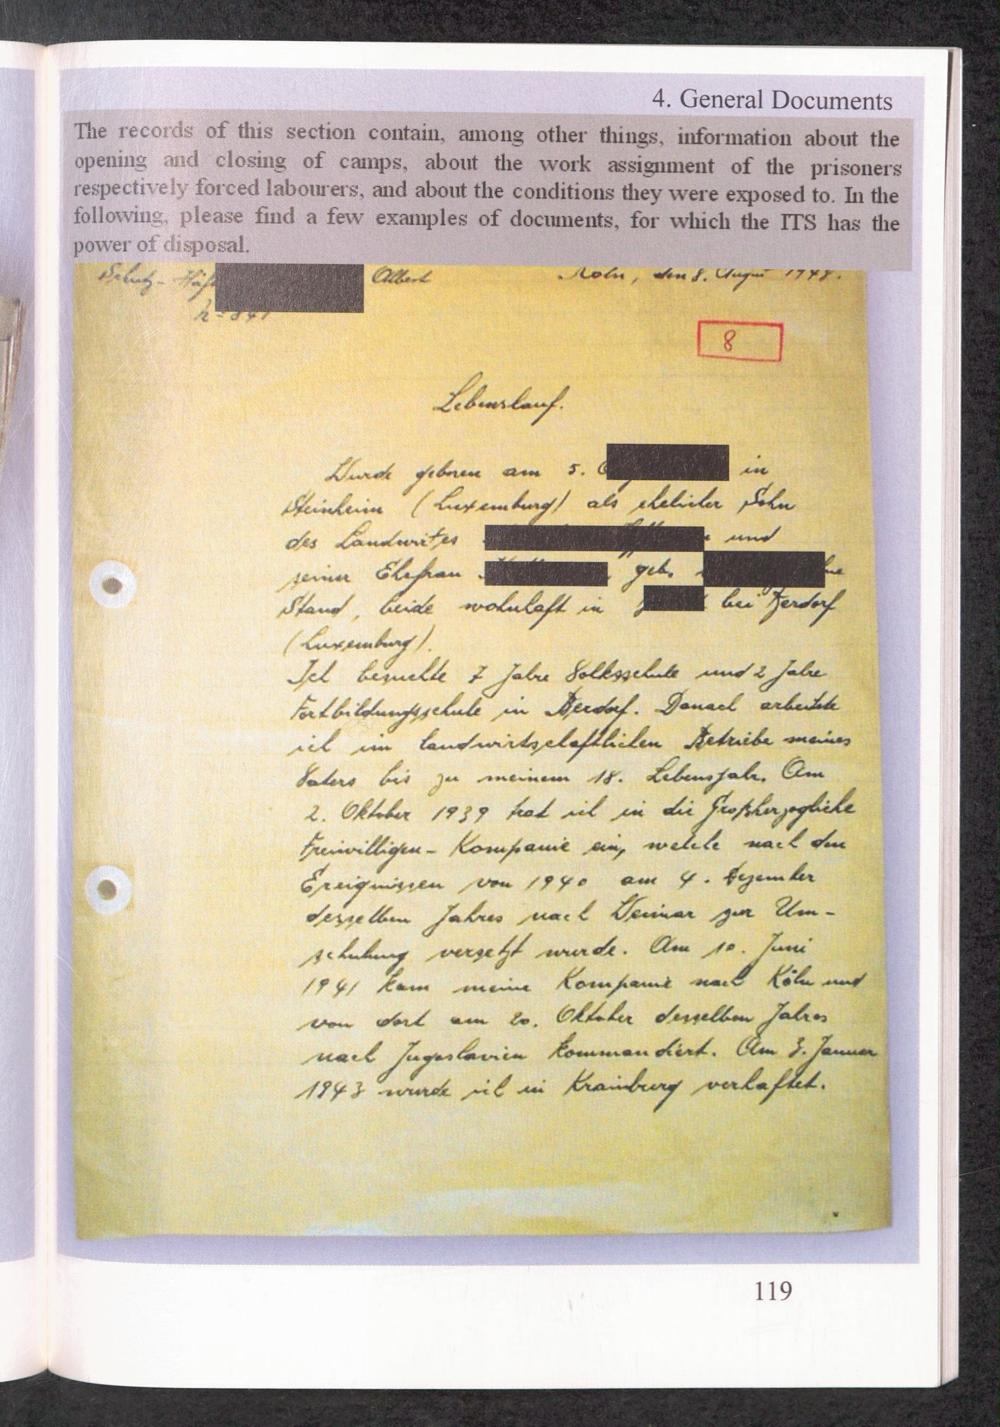 4. General Documents
The records of this section contain, among other things, information about the
opening and closing of camps, about the work assignment of the prisoners
respectively forced labourers, and about the conditions they were exposed to. In the
following, please find a few examples of documents, for which the ITS has the
power of disposal.
Schutz-Häft Albert Köln, den 8. August
8
Lebenslauf.
Wurde geboren am 5. in
Steinheim (Luxemburg) als ehelicher Sohn
des Landwirtes und
seiner Ehefrau geb.
Stand, beide wohnhaft in bei Berdorf
(Luxemburg).
Ich besuchte 7 Jahre Volksschule und 2 Jahre
Fortbildungsschule in Berdorf. Danach arbeitete
ich im landwirtschaftlichen Betriebe meines
Vaters bis zu meinem 18. Lebensjahr. Am
2. Oktober 1939 trat ich in die Großherzogliche
Freiwilligen-Kompanie ein, welche nach den
Ereignissen von 1940 am 4. Dezember
desselben Jahres nach Weimar zur Um-
schulung versetzt wurde. Am 10. Juni
1941 kam meine Kompanie nach Köln und
von dort am 20. Oktober desselben Jahres
nach Jugoslavien kommandiert. Am 3. Januar
1943 wurde ich in Krainburg verhaftet.
119